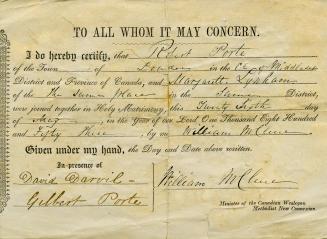 TO ALL WHOM IT MAY CONCERN.
I do hereby certify, that Robert Porte
of the Town of London in the Co. of Middlesex
District and Province of Canada, and Margarett
of the The Same Place in the Same District,
were joined together in Holy Matrimony, this Twenty Sixth day
of May in the Year of our Lord One Thousand Eight Hundred
and Fifty Three, by me William McClure
Given under my hand, the Day and Date above written.
In presence of
David Darvil
Gilbert Porte
William McClure
Minister of the Canadian Wesleyan
Methodist New Connexion.